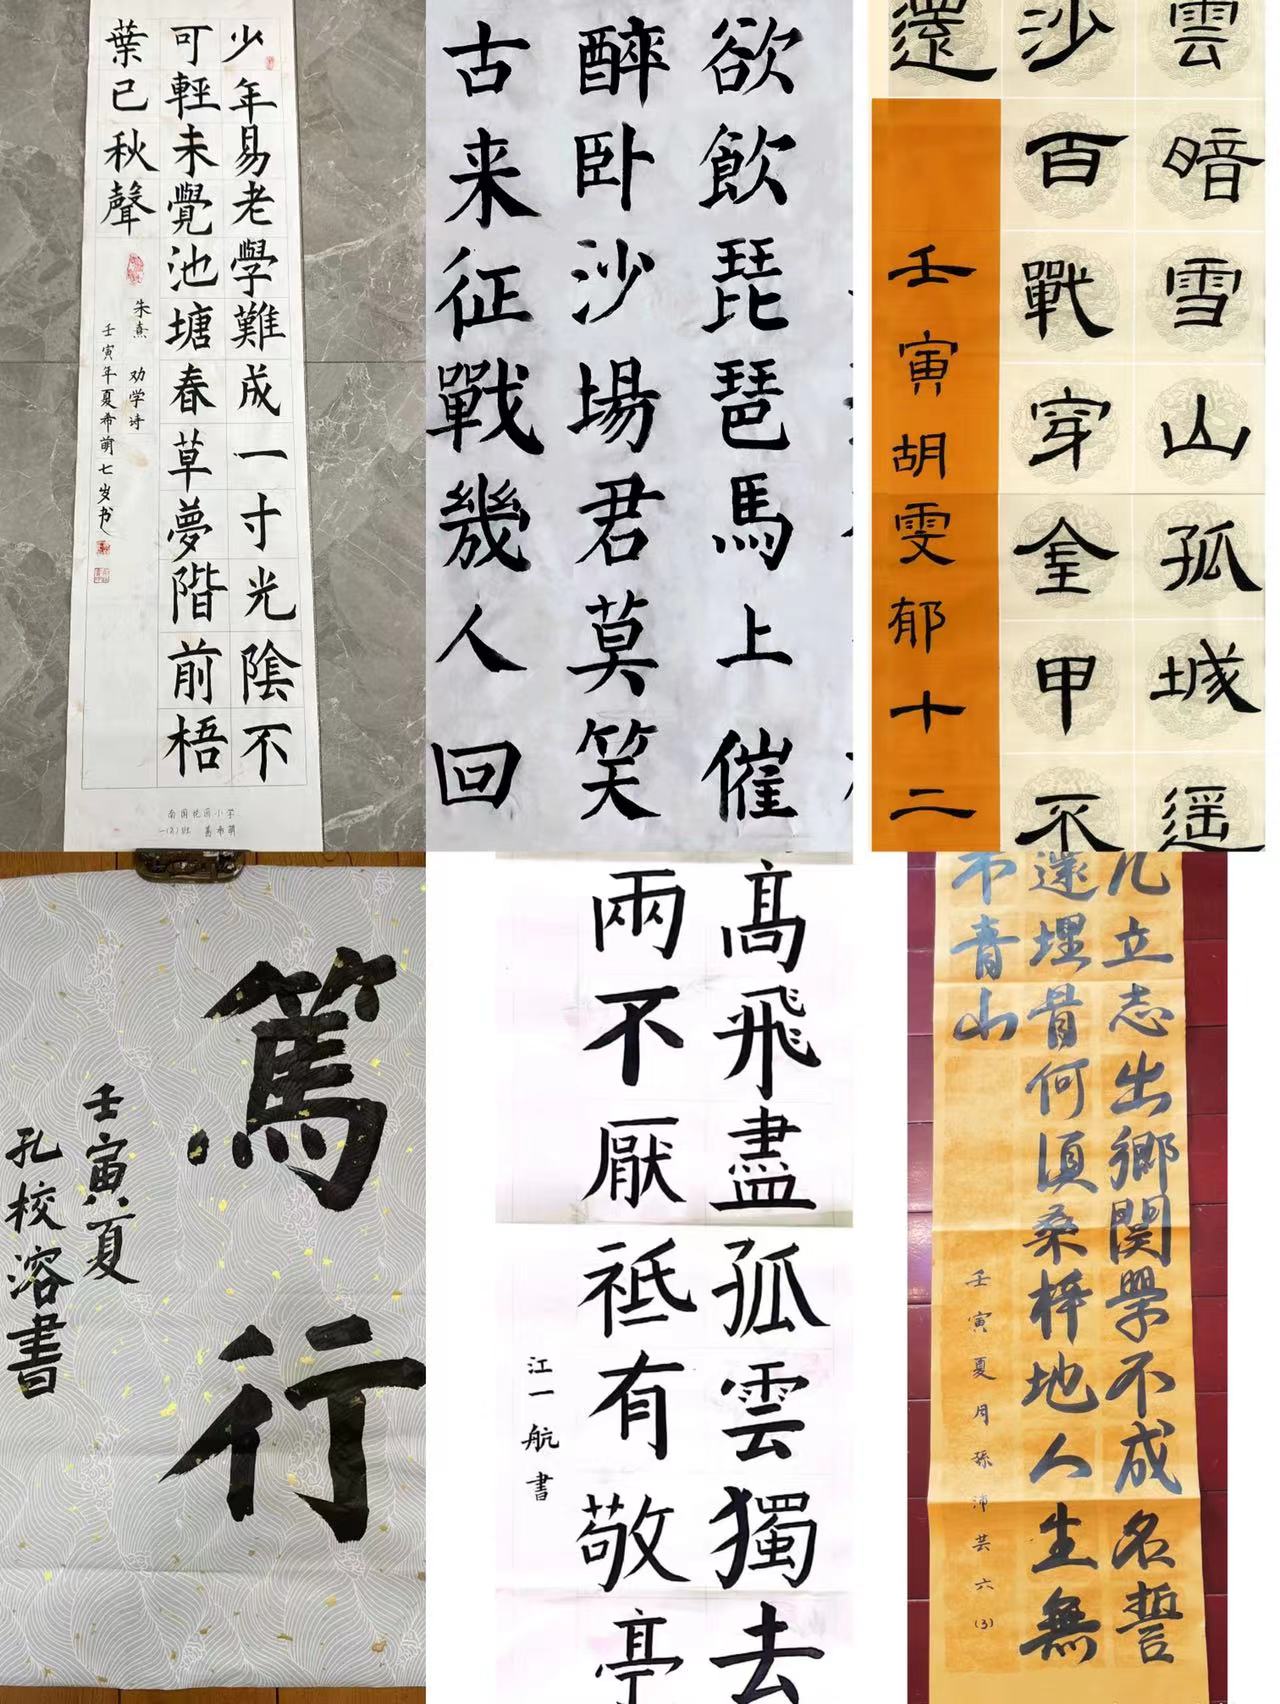 少年易老學難成一寸光陰不
可輕未覺池塘春草夢階前梧
葉已秋聲
朱熹 劝学诗
壬寅年夏希萌七岁书
南国花园小学
一(3)班 葛希萌
欲飲琵琶馬上催
醉卧沙場君莫笑
古来征戰幾人回
雲暗雪山孤城遥
沙百戰穿金甲不
還
壬寅胡雯郁十二
篤行
壬寅夏
孔校溶書
高飛盡孤雲獨去
兩不厭祗有敬亭
江一航書
几立志出鄉関學不成名誓
還埋骨何須桑梓地人生無
不青山
壬寅夏月孫沛芸六(3)